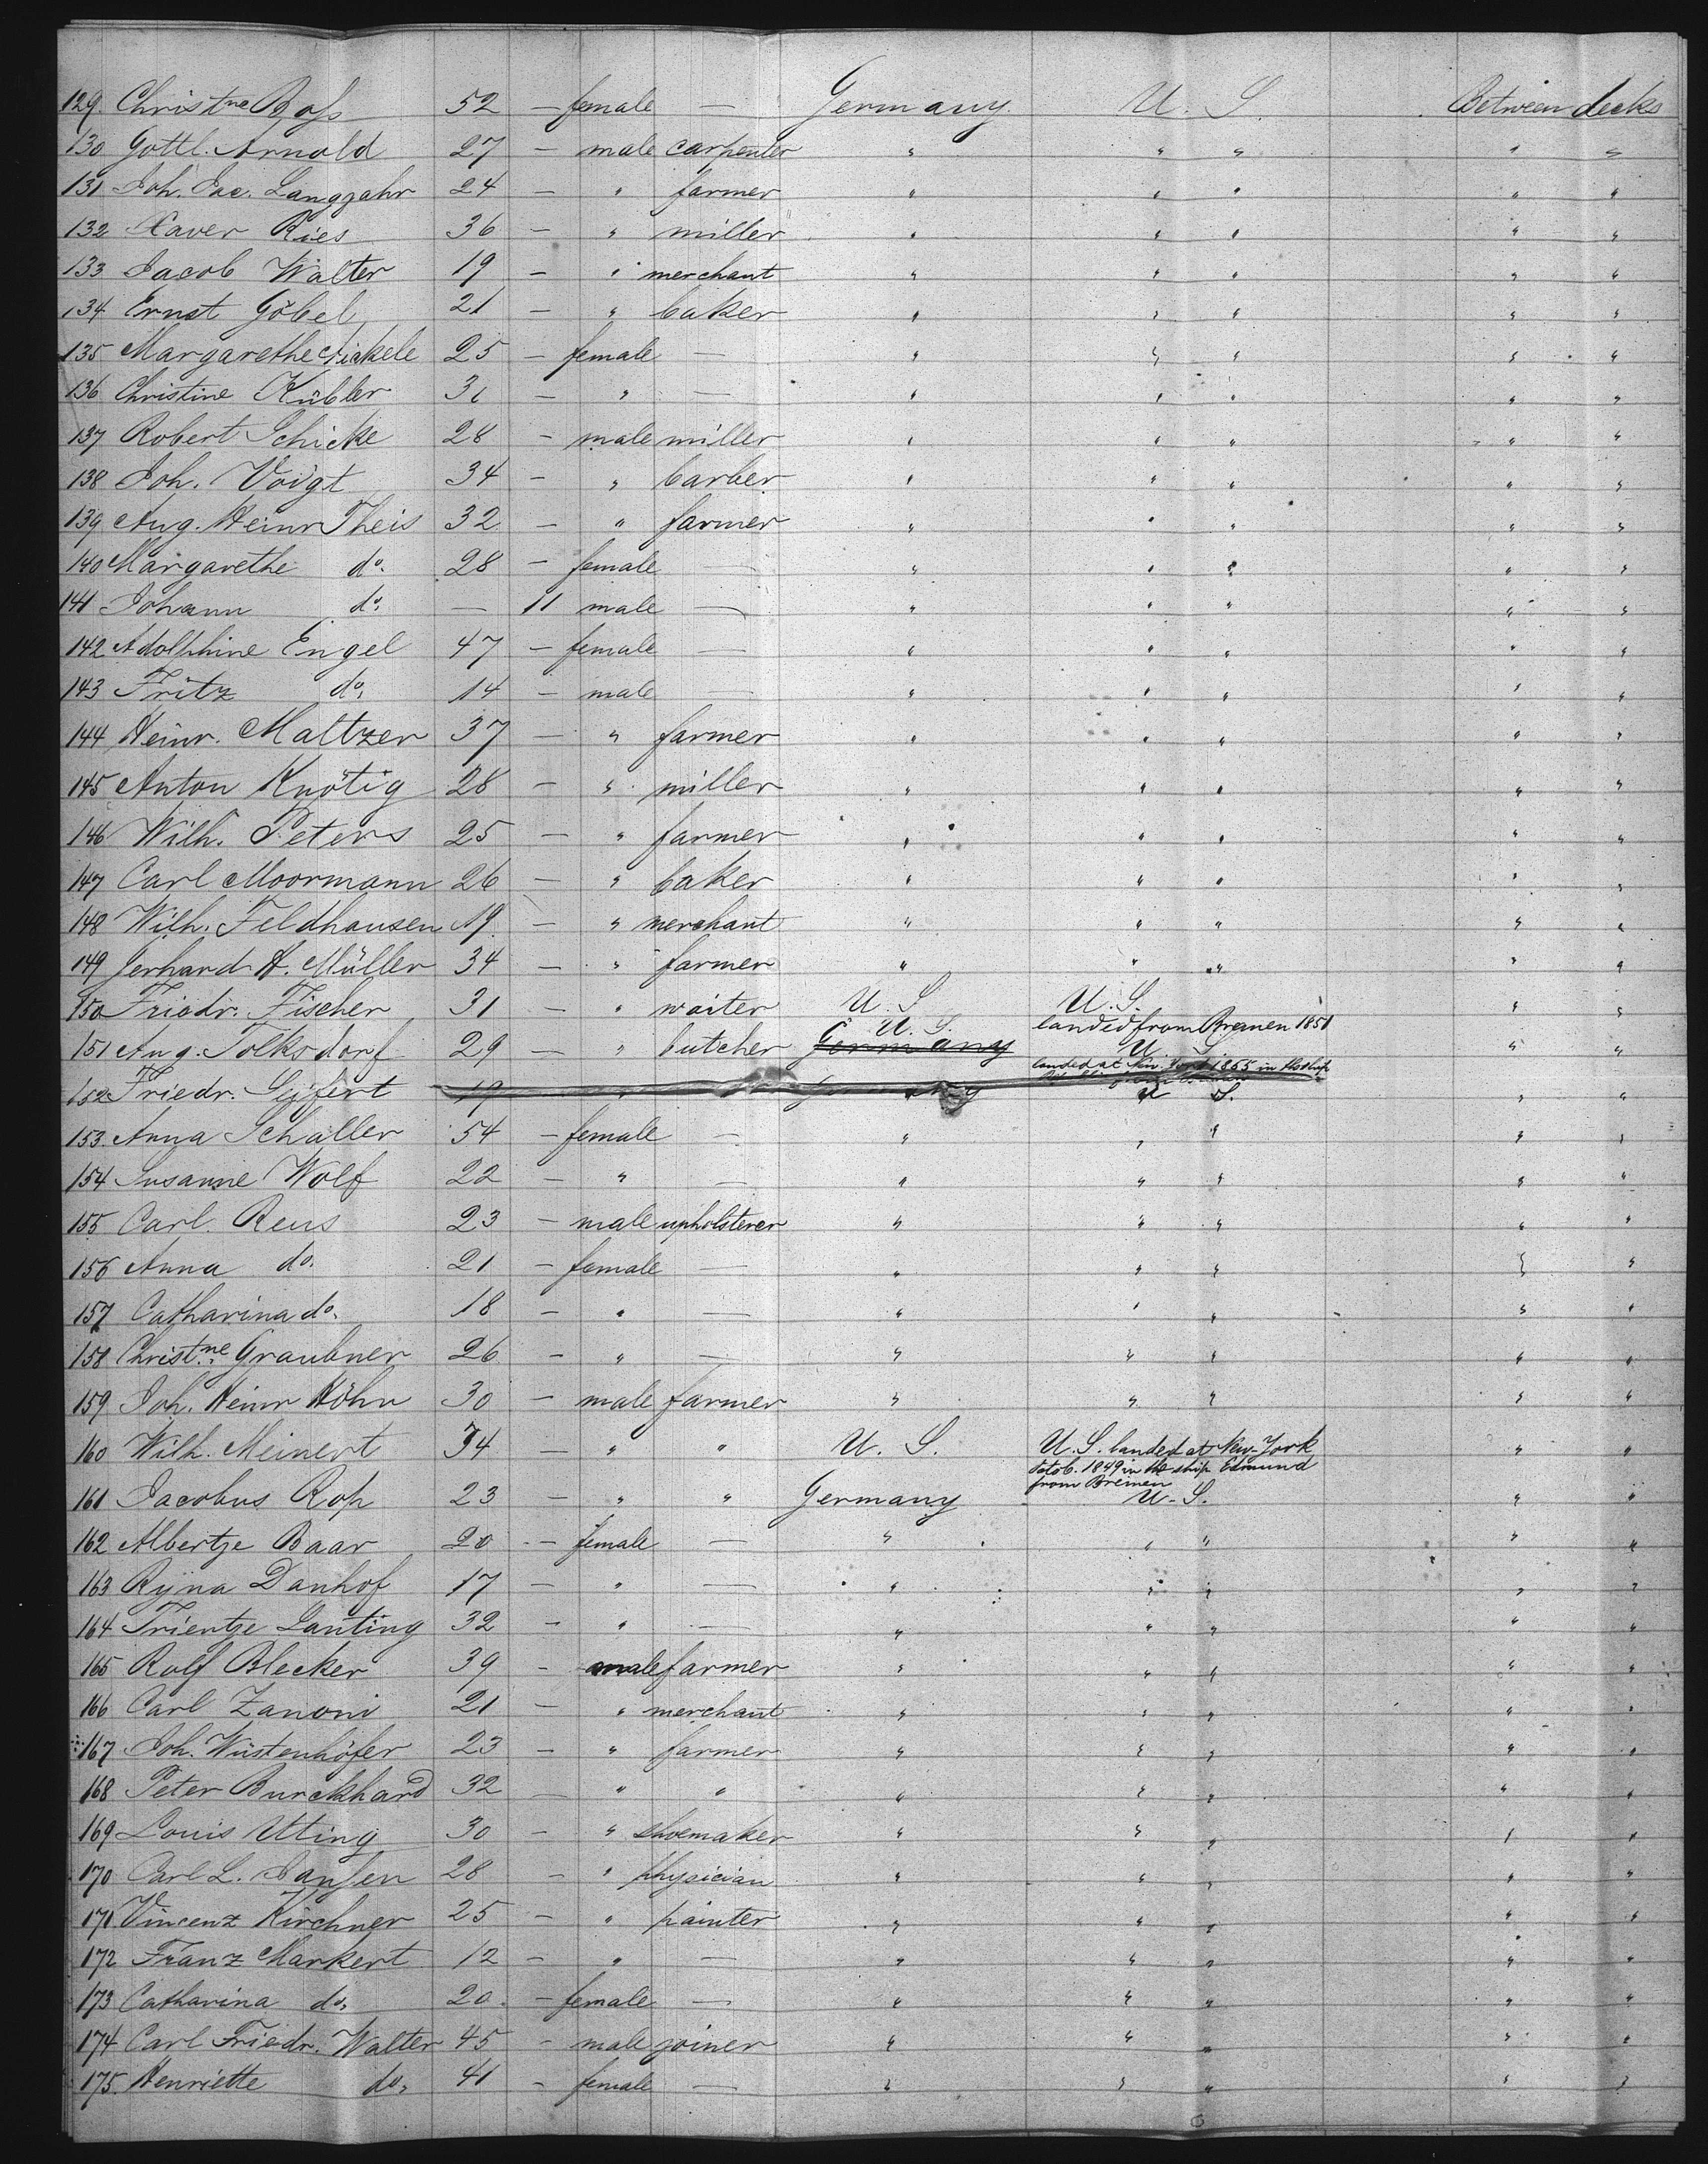 129. Christne Boſs 52 — female — Germany U. S. Between decks
130 Gottl. Arnold 27 — male carpenter " " " " "
131 Joh. Jac. Langjahr 24 — " farmer " " " " "
132 Xaver Ries 36 — " miller " " " " "
133 Jacob Walter 19 — " merchant " " " " "
134 Ernst Göbel 21 — " baker " " " " "
135 Margarethe 25 — female — " " " " "
136 Christine Kübler 31 — " — " " " " "
137 Robert Schicke 28 — male miller " " " " "
138 Joh. Voigt 34 — " barber " " " " "
139 Aug. Heinr Theis 32 — " farmer " " " " "
140 Margarethe do. 28 — female — " " " " "
141 Johann do. — 11 male — " " " " "
142 Adolphine Engel 47 — female — " " " " "
143 Fritz do. 14 — male — " " " " "
144 Heinr. Maltzer 37 — " farmer " " " " "
145 Anton Knötig 28 — " miller " " " " "
146 Wilh. Peters 25 — " farmer " " " " "
147 Carl Moormann 26 — " baker " " " " "
148 Wilh. Feldhausen 19 — " merchant " " " " "
149 Gerhard H. Müller 34 — " farmer " " " " "
150 Friedr. Fischer 31 — " waiter U. S. U. S. " "
landed from Bremen 1851
151 Aug. Tolksdorf 29 — " butcher U. S. Germany U. S. " "
landed at New-York 1855 in the ship
152 Friedr. Seifert 19 " Germany U S. " "
153. Anna Schaller 54 — female — " " " " "
154 Susanne Wolf 22 — " — " " " " "
155 Carl Reus 23 — male upholsterer " " " " "
156 Anna do. 21 — female — " " " " "
157 Catharina do. 18 — " — " " " " "
158 Christne Graubner 26 — " — " " " " "
159 Joh. Heinr Höhn 30 — male farmer " " " " "
160 Wilh. Meinert 34 — " " U. S. U. S. landed at New-York " "
Octob. 1849 in the ship Edmund
from Bremen
161 Jacobus Rop 23 — " " Germany U. S. " "
162 Albertje Baar 20 — female — " " " " "
163 Ryna Danhof 17 — " — " " " " "
164 Trientje Lanting 32 — " — " " " " "
165 Rolf Blecker 39 — male farmer " " " " "
166 Carl Zanoni 21 — " merchant " " " " "
167 Joh. Wüstenhöfer 23 — " farmer " " " " "
168 Peter Burckhard 32 — " " " " " " "
169 Louis Utting 30 — " shoemaker " " " " "
170 Carl L. Janſen 28 — " physician " " " " "
171 Vincenz Kirchner 25 — " painter " " " " "
172 Franz Markert 12 — " — " " " " "
173 Catharina do. 20. — female — " " " " "
174 Carl Friedr. Walter 45 — male joiner " " " " "
175 Henriette do. 41 — female — " " " " "